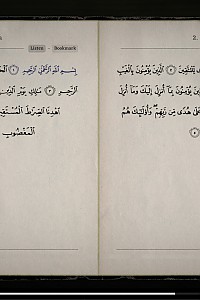 2.
Listen - Bookmark
بِسْمِ اللَّهِ الرَّحْمَٰنِ الرَّحِيمِ
الرَّحِيمِ ۝ مَالِكِ يَوْمِ الدِّينِ
اهْدِنَا الصِّرَاطَ الْمُسْتَقِي
الْمَغْضُوبِ
لِّلْمُتَّقِينَ ۝ الَّذِينَ يُؤْمِنُونَ بِالْغَيْبِ
يُؤْمِنُونَ بِمَا أُنزِلَ إِلَيْكَ وَمَا أُنزِلَ
عَلَىٰ هُدًى مِّن رَّبِّهِمْ ۖ وَأُولَٰئِكَ هُمُ